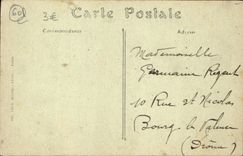 60
3€
Carte Postale
Correspondance
Adresse
Mademoiselle
Germaine Regault
10 Rue St Nicolas
Bourg les Valence
(Drôme)